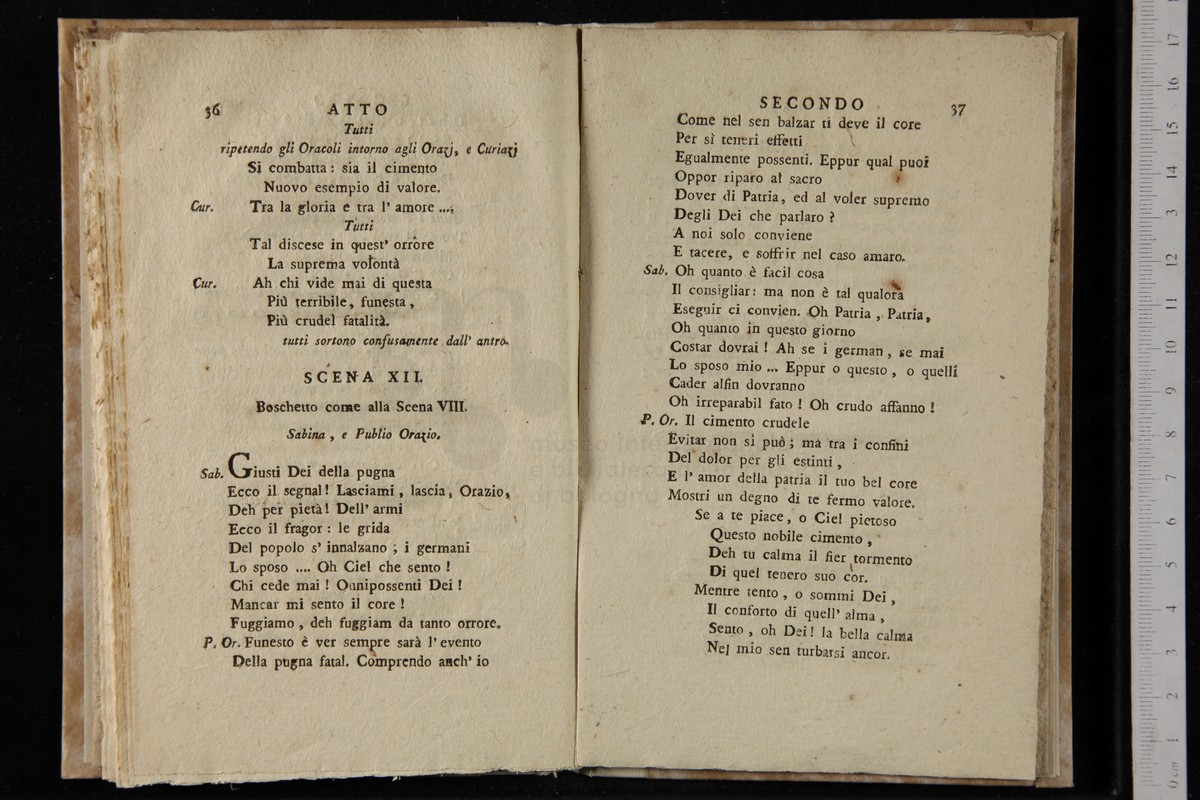 36 ATTO
Tutti
ripetendo gli Oracoli intorno agli Orazj, e Curiazj
Si combatta : sia il cimento
Nuovo esempio di valore.
Cur. Tra la gloria e tra l' amore ....
Tutti
Tal discese in quest' orrore
La suprema volontà
Cur. Ah chi vide mai di questa
Più terribile, funesta ,
Più crudel fatalità.
tutti sortono confusamente dall' antro.
SCENA XII.
Boschetto come alla Scena VIII.
Sabina , e Publio Orazio.
Sab. Giusti Dei della pugna
Ecco il segnal! Lasciami , lascia, Orazio,
Deh per pietà! Dell' armi
Ecco il fragor : le grida
Del popolo s' innalzano ; i germani
Lo sposo .... Oh Ciel che sento !
Chi cede mai ! Onnipossenti Dei !
Mancar mi sento il core !
Fuggiamo , deh fuggiam da tanto orrore.
P. Or. Funesto è ver sempre sarà l' evento
Della pugna fatal. Comprendo anch' io
SECONDO 37
Come nel sen balzar ti deve il core
Per sì teneri effetti
Egualmente possenti. Eppur qual puoi
Oppor riparo al sacro
Dover di Patria, ed al voler supremo
Degli Dei che parlaro ?
A noi solo conviene
E tacere, e soffrir nel caso amaro.
Sab. Oh quanto è facil cosa
Il consigliar: ma non è tal qualora
Eseguir ci convien. Oh Patria , Patria,
Oh quanto in questo giorno
Costar dovrai ! Ah se i german , se mai
Lo sposo mio ... Eppur o questo , o quelli
Cader alfin dovranno
Oh irreparabil fato ! Oh crudo affanno !
P. Or. Il cimento crudele
Evitar non si può ; ma tra i confini
Del dolor per gli estinti ,
E l' amor della patria il tuo bel core
Mostri un degno di te fermo valore.
Se a te piace, o Ciel pietoso
Questo nobile cimento ,
Deh tu calma il fier tormento
Di quel tenero suo cor.
Mentre tento , o sommi Dei ,
Il conforto di quell' alma ,
Sento , oh Dei! la bella calma
Nel mio sen turbarsi ancor.